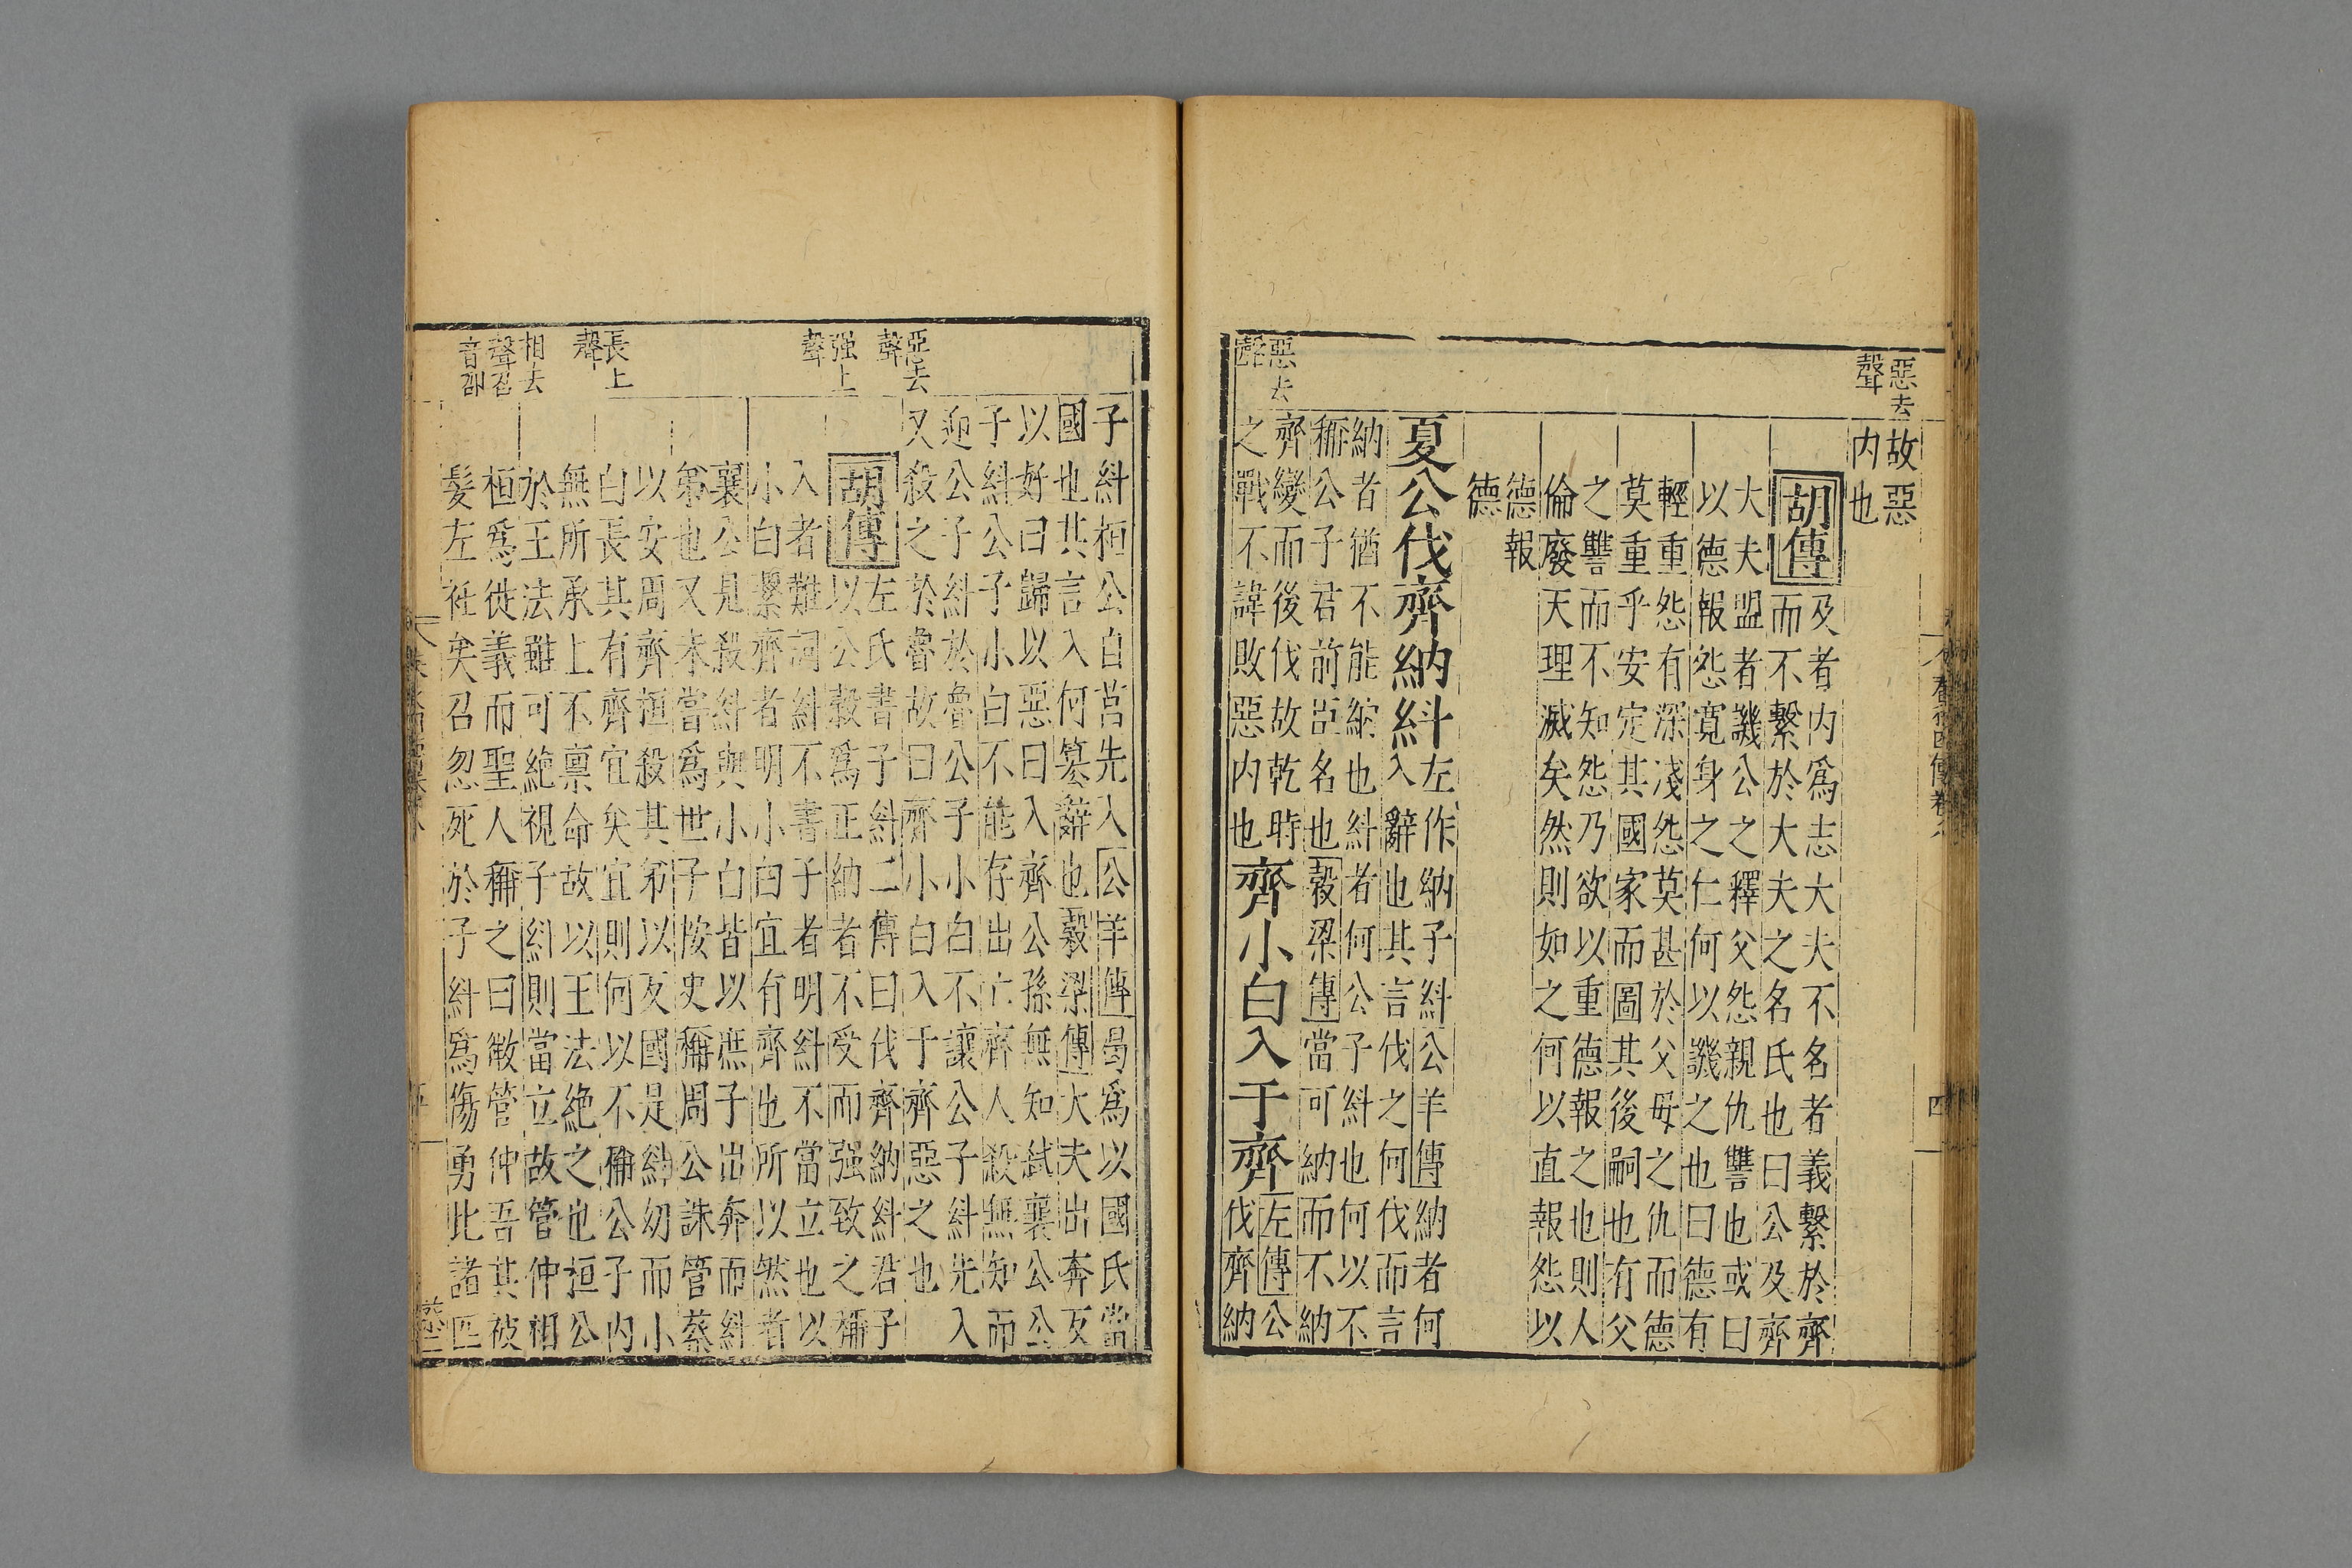 惡去
聲
故惡
内也
胡傳
及者内爲志大夫不名者義繫於齊
而不繫於大夫之名氏也曰公及齊
大夫盟者譏公之釋父怨親仇讐也或曰
以德報怨寛身之仁何以譏之也曰德有
輕重怨有深淺怨莫甚於父母之仇而德
莫重乎安定其國家而圖其後嗣也有父
之讐而不知怨乃欲以重德報之也則人
倫廢天理滅矣然則如之何以直報怨以
德報
德
夏公伐齊納糾
左作納子糾公羊傳納者何
入辭也其言伐之何伐而言
納者猶不能納也糾者何公子糾也何以不
稱公子君前臣名也穀梁傳當可納而不納
惡去
聲
齊變而後伐故乾時
之戰不諱敗惡内也
齊小白入于齊
左傳公
伐齊納
子糾桓公自莒先入公羊傳曷爲以國氏當
國也其言入何簒辭也穀梁傳大夫出奔反
以好曰歸以惡曰入齊公孫無知弑襄公公
子糾公子小白不能存出亡齊人殺無知而
迎公子糾於魯公子小白不讓公子糾先入
又殺之於魯故曰齊小白入于齊惡之也
惡去
聲
胡傳
左氏書子糾二傳曰伐齊納糾君子
以公穀爲正納者不受而强致之稱
强上
聲
入者難詞糾不書子者明糾不當立也以
小白繫齊者明小白宜有齊也所以然者
襄公見殺糾與小白皆以庶子出奔而糾
弟也又未當爲世子按史稱周公誅管蔡
以安周齊桓殺其弟以反國是糾幼而小
白長其有齊宜矣宜則何以不稱公子内
長上
聲
無所承上不禀命故以王法絶之也桓公
於王法雖可絶視子糾則當立故管仲相
相去
聲召
音邵
桓爲徙義而聖人稱之曰微管仲吾其被
髮左衽矣召忽死於子糾爲傷勇比諸匹